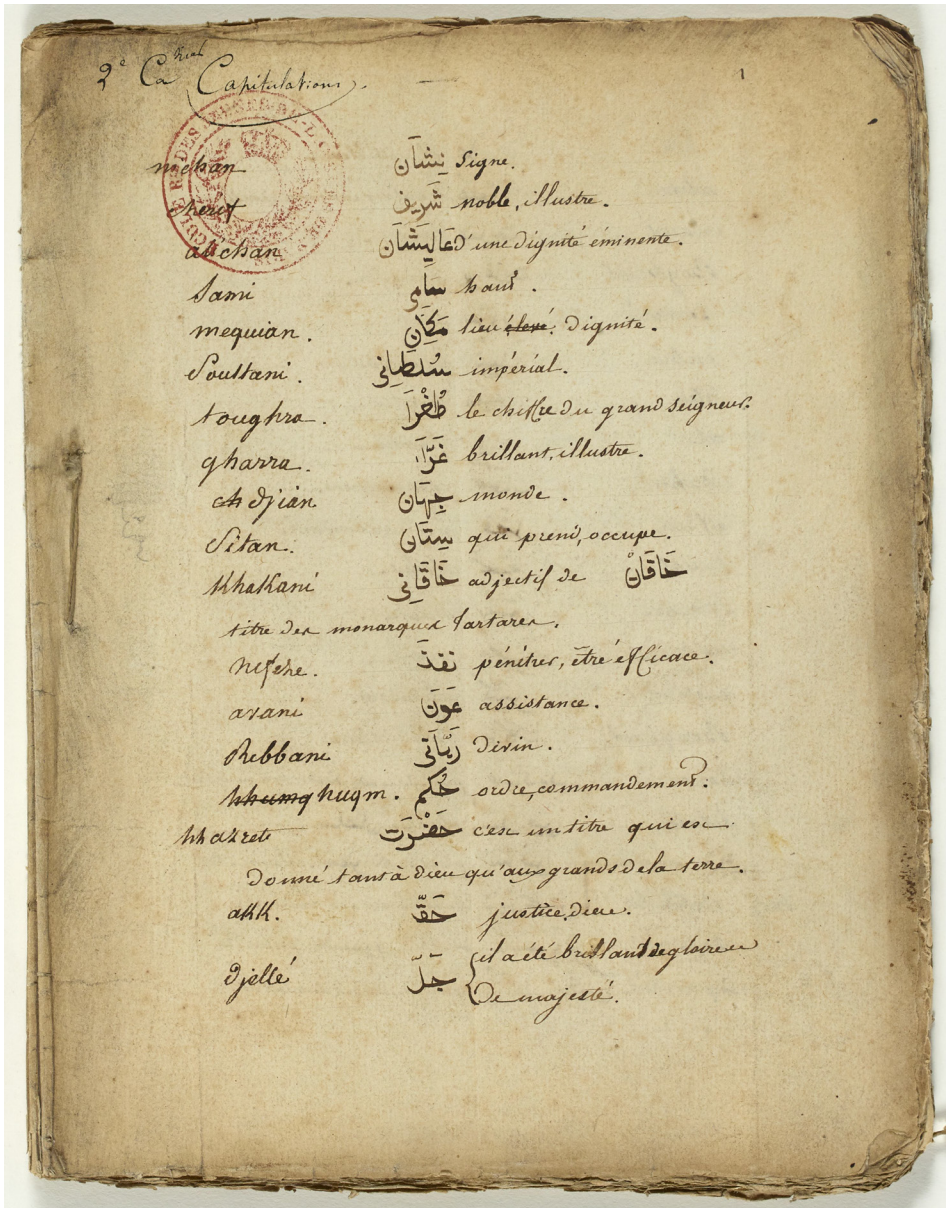 2e Ca hial Capitulations.
1
nichan نِشَان signe.
cherif شَرِيف noble, illustre.
alichan عَالِيشَان d'une dignité éminente.
Sami سَامِي haut.
mequian. مَكَان lieu élevé. dignité.
Soultani. سُلطَانِي impérial.
toughra. طُغْرَا le chiffre du grand seigneur.
gharra. غَرَّاء brillant, illustre.
ch djian جِهَان monde.
Sitan. سِتَان qui prend, occupe.
Khakani خَاقَانِي adjectif de خَاقَانْ
titre des monarques tartares.
nefehe. نفذَ pénétrer, être efficace.
avani عَوَن assistance.
Rebbani رَبَّانِي divin.
hhumq huqm. حُكم ordre, commandement.
hhazrete حَضْرَت c'est un titre qui est
donné tant à dieu qu'aux grands de la terre.
akk. حَقّ justice, dieu.
djellé جَلّ il a été brillant de gloire et
de majesté.